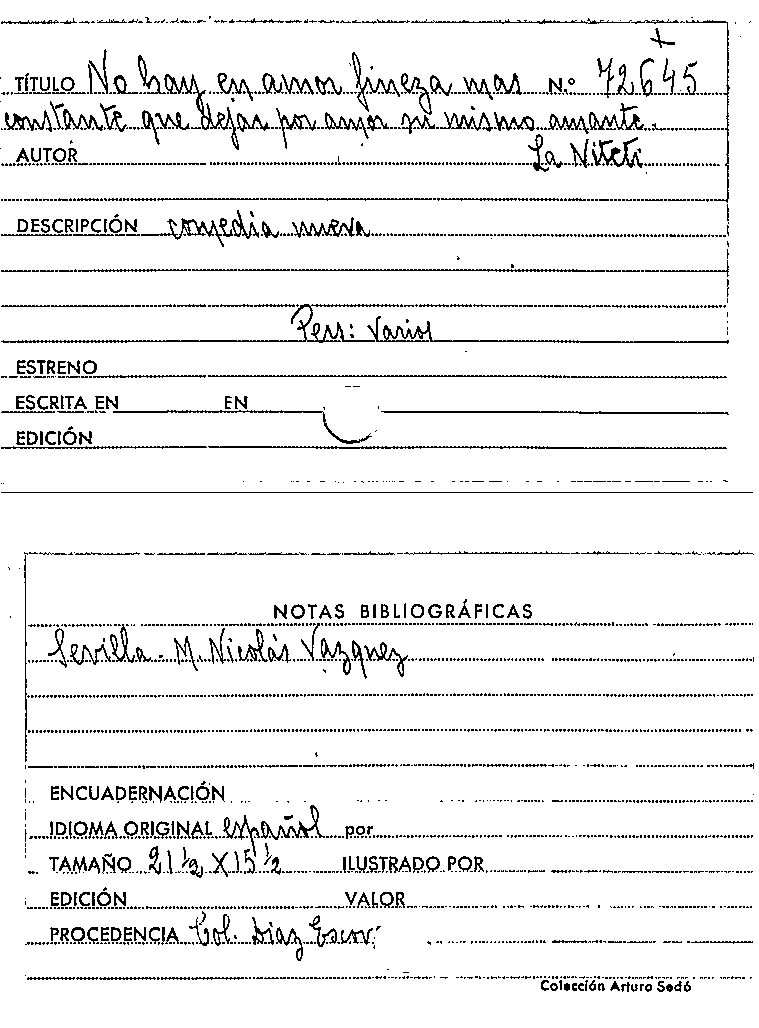 +
TÍTULO No hay en amor fineza mas N.º 72645
constante que dejar por amor su mismo amante.
AUTOR La Niteti
DESCRIPCIÓN comedia nueva
Pers: Varios
ESTRENO
ESCRITA EN EN
EDICIÓN
NOTAS BIBLIOGRÁFICAS
Sevilla - M. Nicolás Vazquez
ENCUADERNACIÓN
IDIOMA ORIGINAL español por
TAMAÑO 21 ½ X 15 ½ ILUSTRADO POR
EDICIÓN VALOR
PROCEDENCIA Col. Diaz Escov.
Colección Arturo Sedó